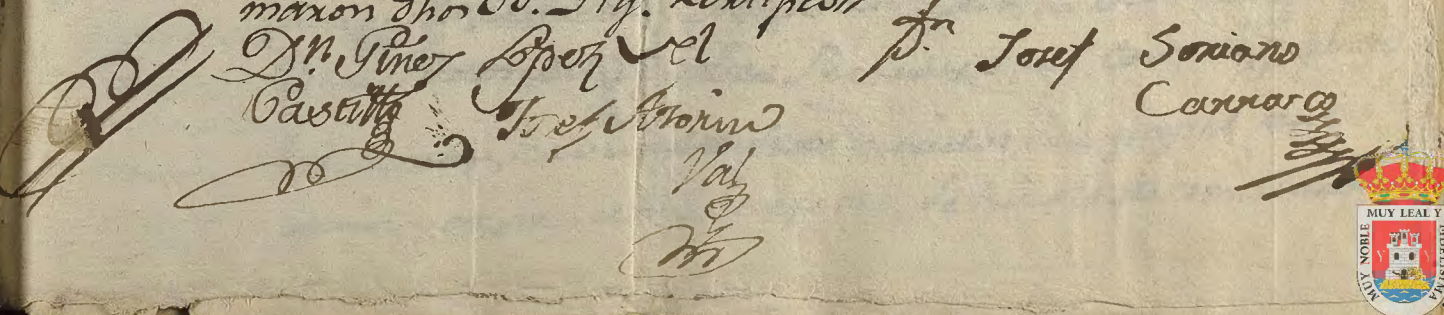 maron dhos
Dn. Ginez Lopez Vel
Castillo
Josef Antonio
Val
Dn Josef Soriano
Carrasco
MUY NOBLE
MUY LEAL Y
FIDELISIMA